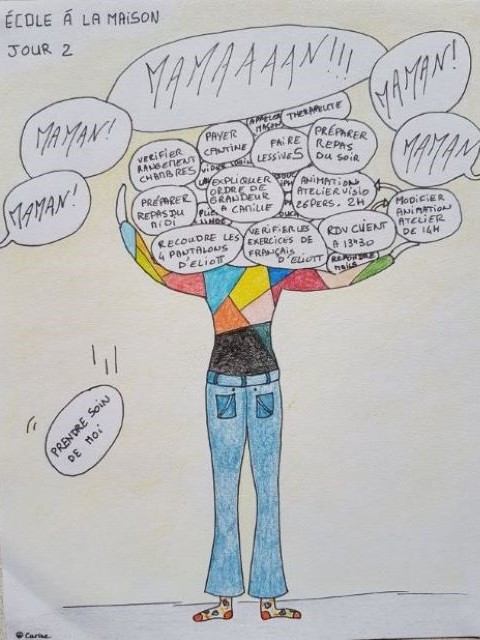 ÉCOLE À LA MAISON
JOUR 2
MAMAAAAN!!!
MAMAN!
MAMAN!
MAMAN!
MAMAN
APPELER
THERAPEUTE
PAYER
CANTINE
FAIRE
LESSIVE 5
PRÉPARER
REPAS
DU SOIR
VERIFIER
RANGEMENT
CHAMBRES
EXPLIQUER
ORDRE DE
GRANDEUR
A CAMILLE
ANIMATION
ATELIER VISIO
26 PERS. 2H
PRÉPARER
REPAS DU
MIDI
MODIFIER
ANIMATION
ATELIER
DE 14H
RECOUDRE LES
4 PANTALONS
D'ELIOTT
VERIFIER LES
EXERCICES DE
FRANÇAIS
D'ELIOTT
RDV CLIENT
A 13H30
REPONDRE
MAILS
PRENDRE SOIN
DE MOI
@Carine